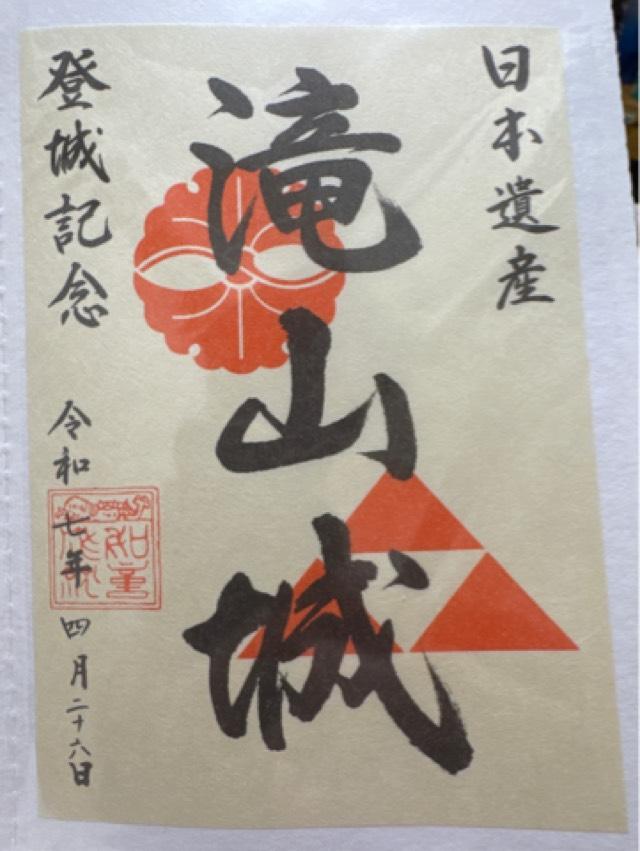 日本遺産
滝山城
登城記念
令和七年四月二十六日